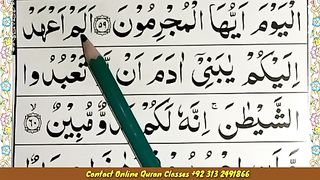 الْيَوْمَ اَيُّهَا الْمُجْرِمُوْنَ ﴿۵۹﴾ اَلَمْ اَعْهَدْ
اِلَيْكُمْ يٰبَنِيْۤ اٰدَمَ اَنْ لَّا تَعْبُدُوا
الشَّيْطٰنَ ۚ اِنَّهٗ لَكُمْ عَدُوٌّ مُّبِيْنٌ ﴿۶۰﴾
Contact Online Quran Classes +92 313 2491866